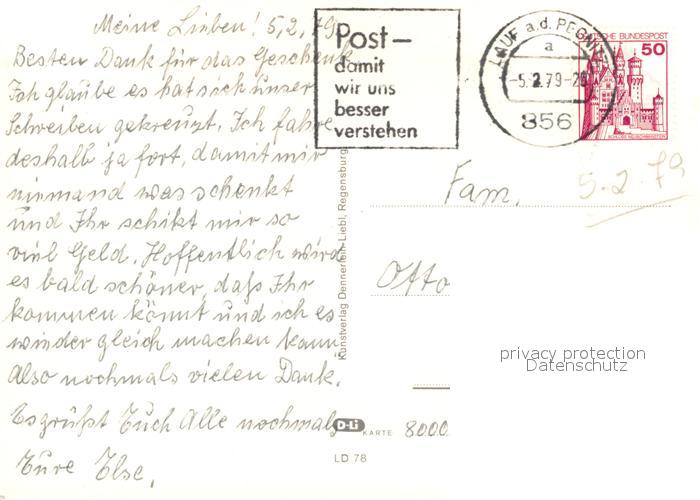 Meine Lieben! 5,2,79
Besten Dank für das Geschenk
Ich glaube es hat sich unser
Schreiben gekreuzt. Ich fahre
deshalb ja fort, damit mir
niemand was schenkt
und Ihr schikt mir so
viel Geld. Hoffentlich wird
es bald schöner, daß Ihr
kommen könnt und ich es
wieder gleich machen kann
Also nochmals vielen Dank.
Es grüßt Euch Alle nochmals
Eure Else.
Post-
damit
wir uns
besser
verstehen
LAUF a.d. PEGNITZ
a
-5.2.79-20
8560
DEUTSCHE BUNDESPOST
50
SCHLOSS NEUSCHWANSTEIN
5.2.79
Fam.
Otto
privacy protection
Datenschutz
8000
Kunstverlag Dennerlein-Liebl, Regensburg
D-Li KARTE
LD 78